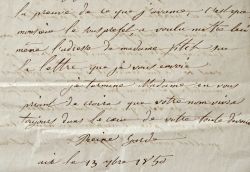 la preuve de ce que j'avance, c'est que
monsieur le sous préfet a voulu mettre lui
même l'adresse de madame
la lettre que je vous envoie
je termine Madame en vous
priant de croire que votre nom vivra
toujours dans le cœur de votre toute dévouée
Reine Garde
aix le 13 1850